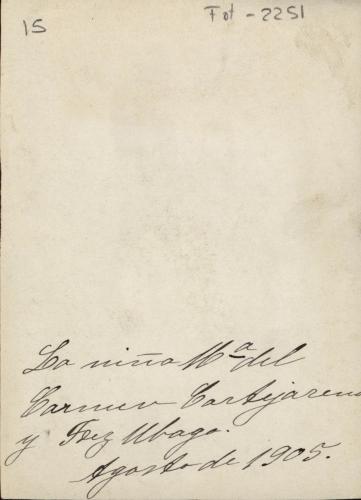 15 Fot-2251
La niña Mª del
Carmen Cortijarena
y Fez Ubago.
Agosto de 1905.